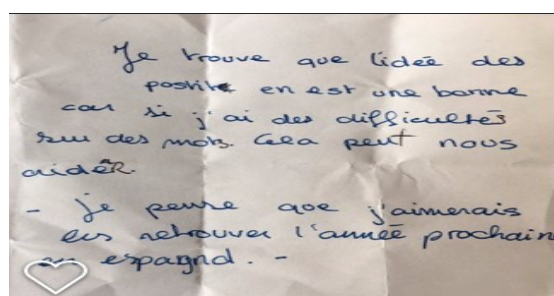 Je trouve que l'idée des
postite en est une bonne
car si j'ai des difficultés
sur des mots. Cela peut nous
aider.
- je pense que j'aimerais
les retrouver l'année prochain
en espagnol. -